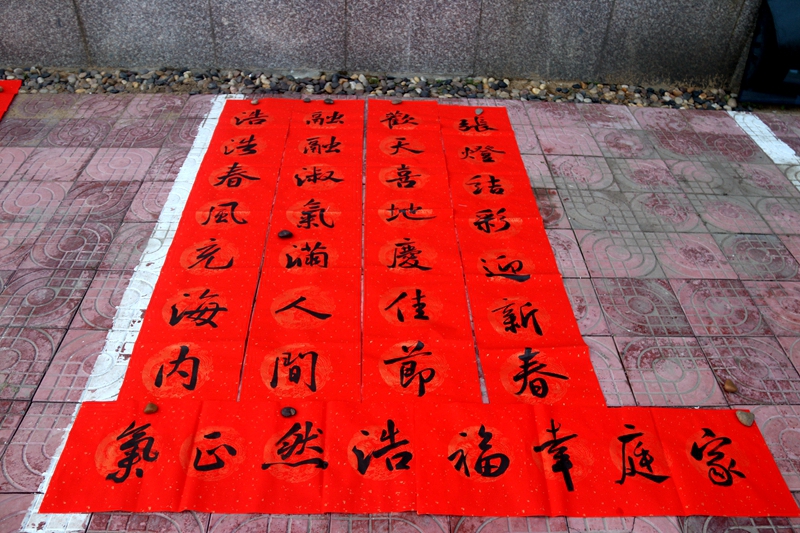 張燈結彩迎新春
歡天喜地慶佳節
融融淑氣滿人間
浩浩春風充海内
家庭幸福
浩然正氣